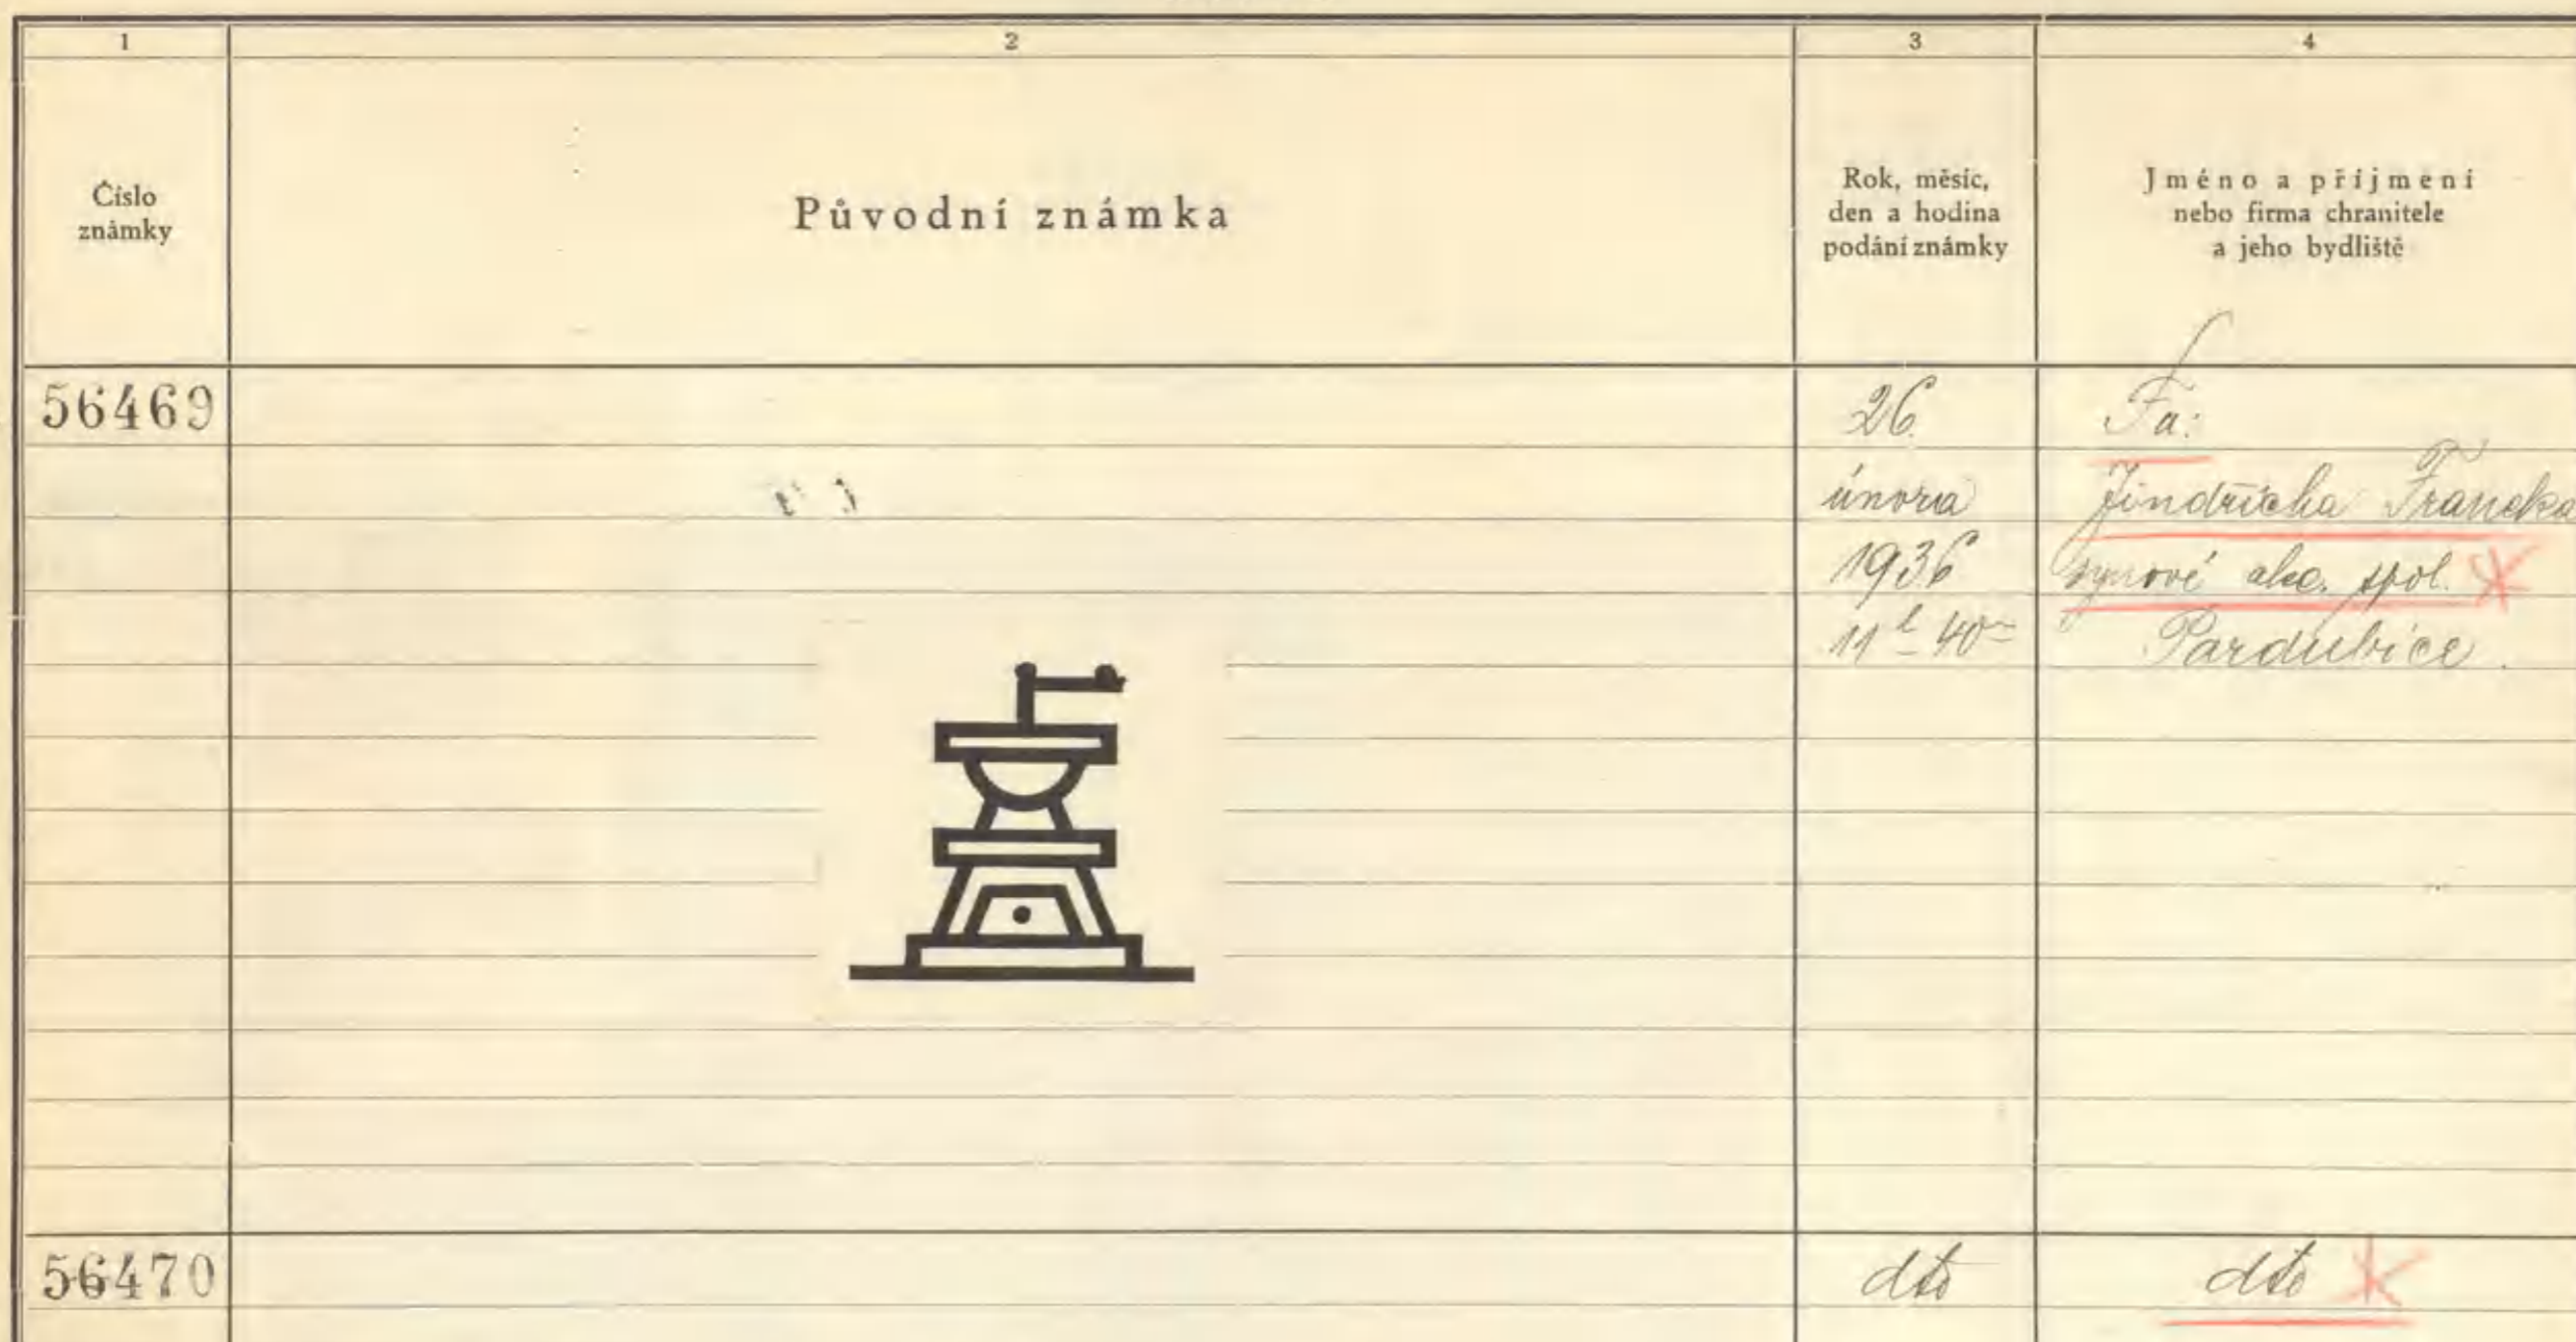 1
2
3
4
Číslo
známky
Původní známka
Rok, měsíc,
den a hodina
podání známky
Jméno a příjmení
nebo firma chranitele
a jeho bydliště
56469
26.
února
1936
11 h 40 m
Fa:
Jindřicha Francka
synové akc. spol.
Pardubice.
56470
dto
dto